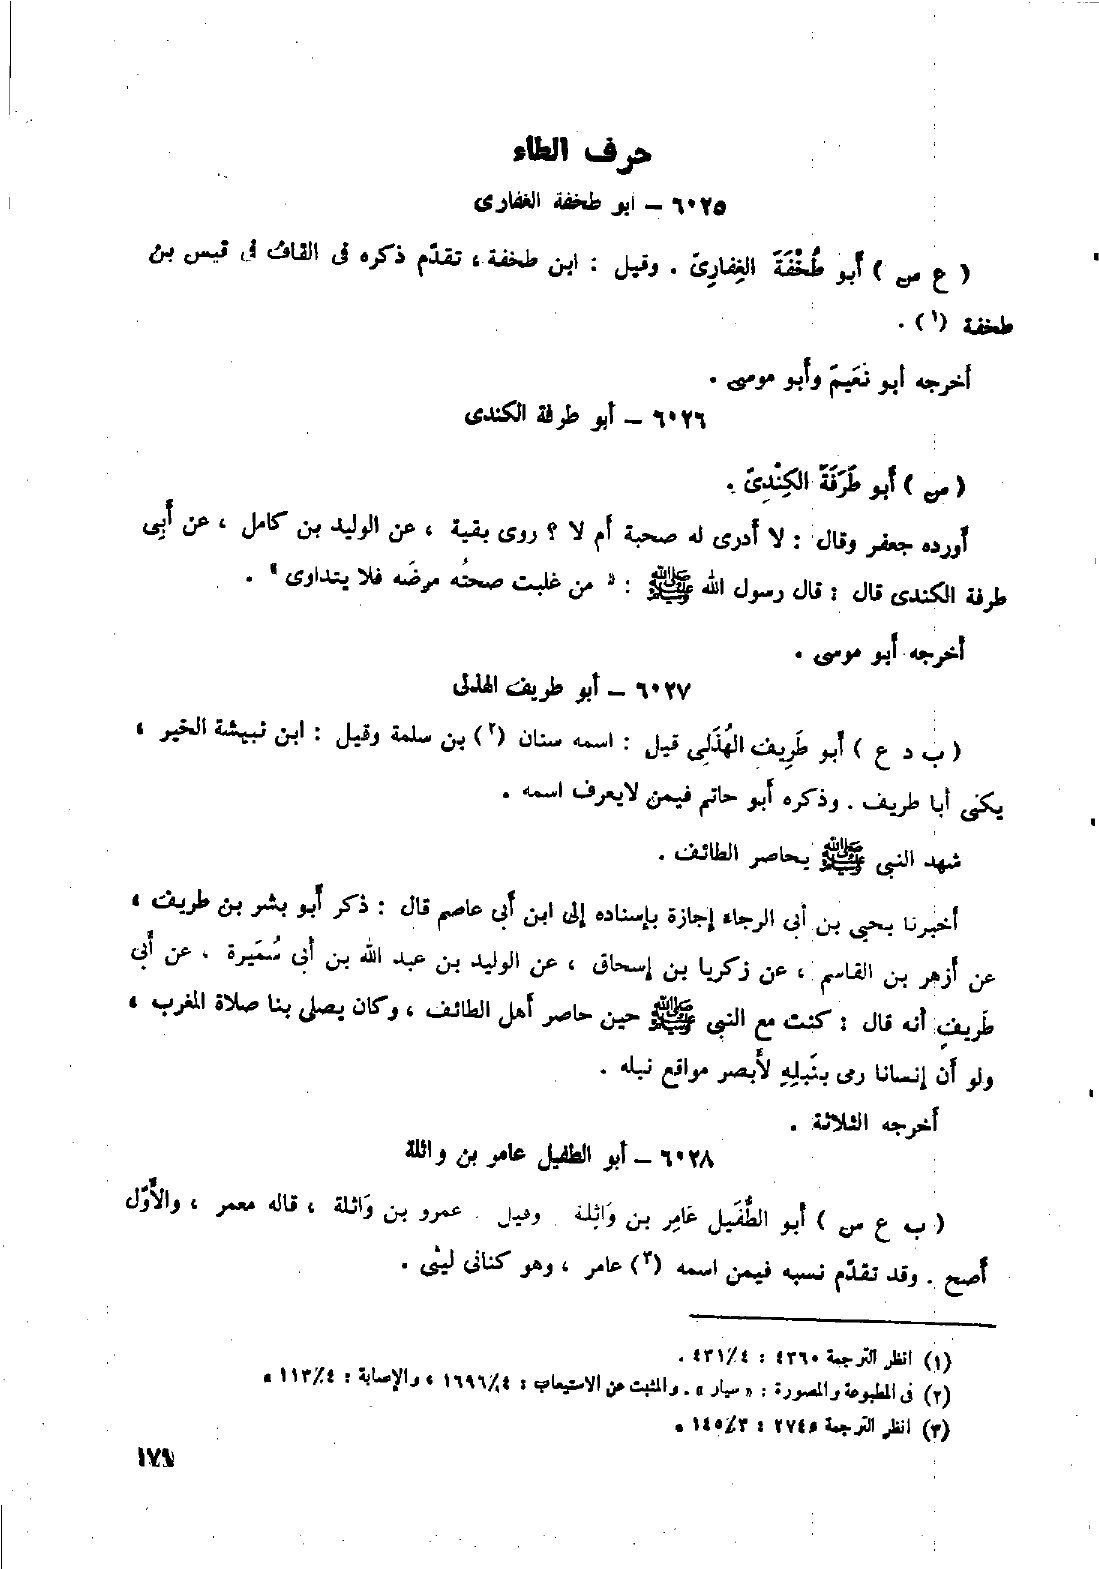 حرف الطاء
٦٠٢٥ – أبو طخفة الغفارى
( ع س ) أَبو طُخْفَةَ الغِفارِىّ . وقيل : ابن طخفة ، تقدّم ذكره فى القاف فى قيس بن
طخفة (١) .
أخرجه أبو نُعَيمَ وأَبو موسى .
٦٠٢٦ – أبو طرفة الكندى
( س ) أَبو طَرَفَةَ الكِنْدِىّ .
أورده جعفر وقال : لا أَدرى له صحبة أم لا ؟ روى بقية ، عن الوليد بن كامل ، عن أَبِى
طرفة الكندى قال : قال رسول الله ﷺ : « من غلبت صحتُه مرضَه فلا يتداوى » .
أخرجه أَبو موسى .
٦٠٢٧ – أبو طريف الهذلى
( ب د ع ) أَبو طَرِيف الهُذَلِى قيل : اسمه سنان (٢) بن سلمة وقيل : ابن نبيشة الخير ،
يكنى أبا طريف . وذكره أَبو حاتم فيمن لايعرف اسمه .
شهد النبى ﷺ يحاصر الطائف .
أخبرنا يحيى بن أبى الرجاء إجازة بإسناده إلى ابن أَبى عاصم قال : ذكر أَبو بشر بن طريف ،
عن أَزهر بن القاسم ، عن زكريا بن إسحاق ، عن الوليد بن عبد الله بن أبى سُمَيرة ، عن أَبى
طَريفٍ أنه قال : كنت مع النبى ﷺ حين حاصر أهل الطائف ، وكان يصلى بنا صلاة المغرب ،
ولو أَن إنسانا رمى بنَبلِهِ لأَبصر مواقع نبله .
أخرجه الثلاثة .
٦٠٢٨ – أبو الطفيل عامر بن واثلة
( ب ع س ) أَبو الطُّفَيل عَامِر بن وَاثِلة . وقيل . عمرو بن وَاثلة ، قاله معمر ، والأَوّل
أَصح . وقد تقدّم نسبه فيمن اسمه (٣) عامر ، وهو كنانى ليثى .
(١) انظر الترجمة ٤٣٦٠ : ٤٣١/٤ .
(٢) فى المطبوعة والمصورة : « سيار » . والمثبت عن الاستيعاب : ١٦٩٦/٤ ، والإصابة : ١١٣/٤ .
(٣) انظر الترجمة ٢٧٤٥ : ١٤٥/٣ .
١٧٩